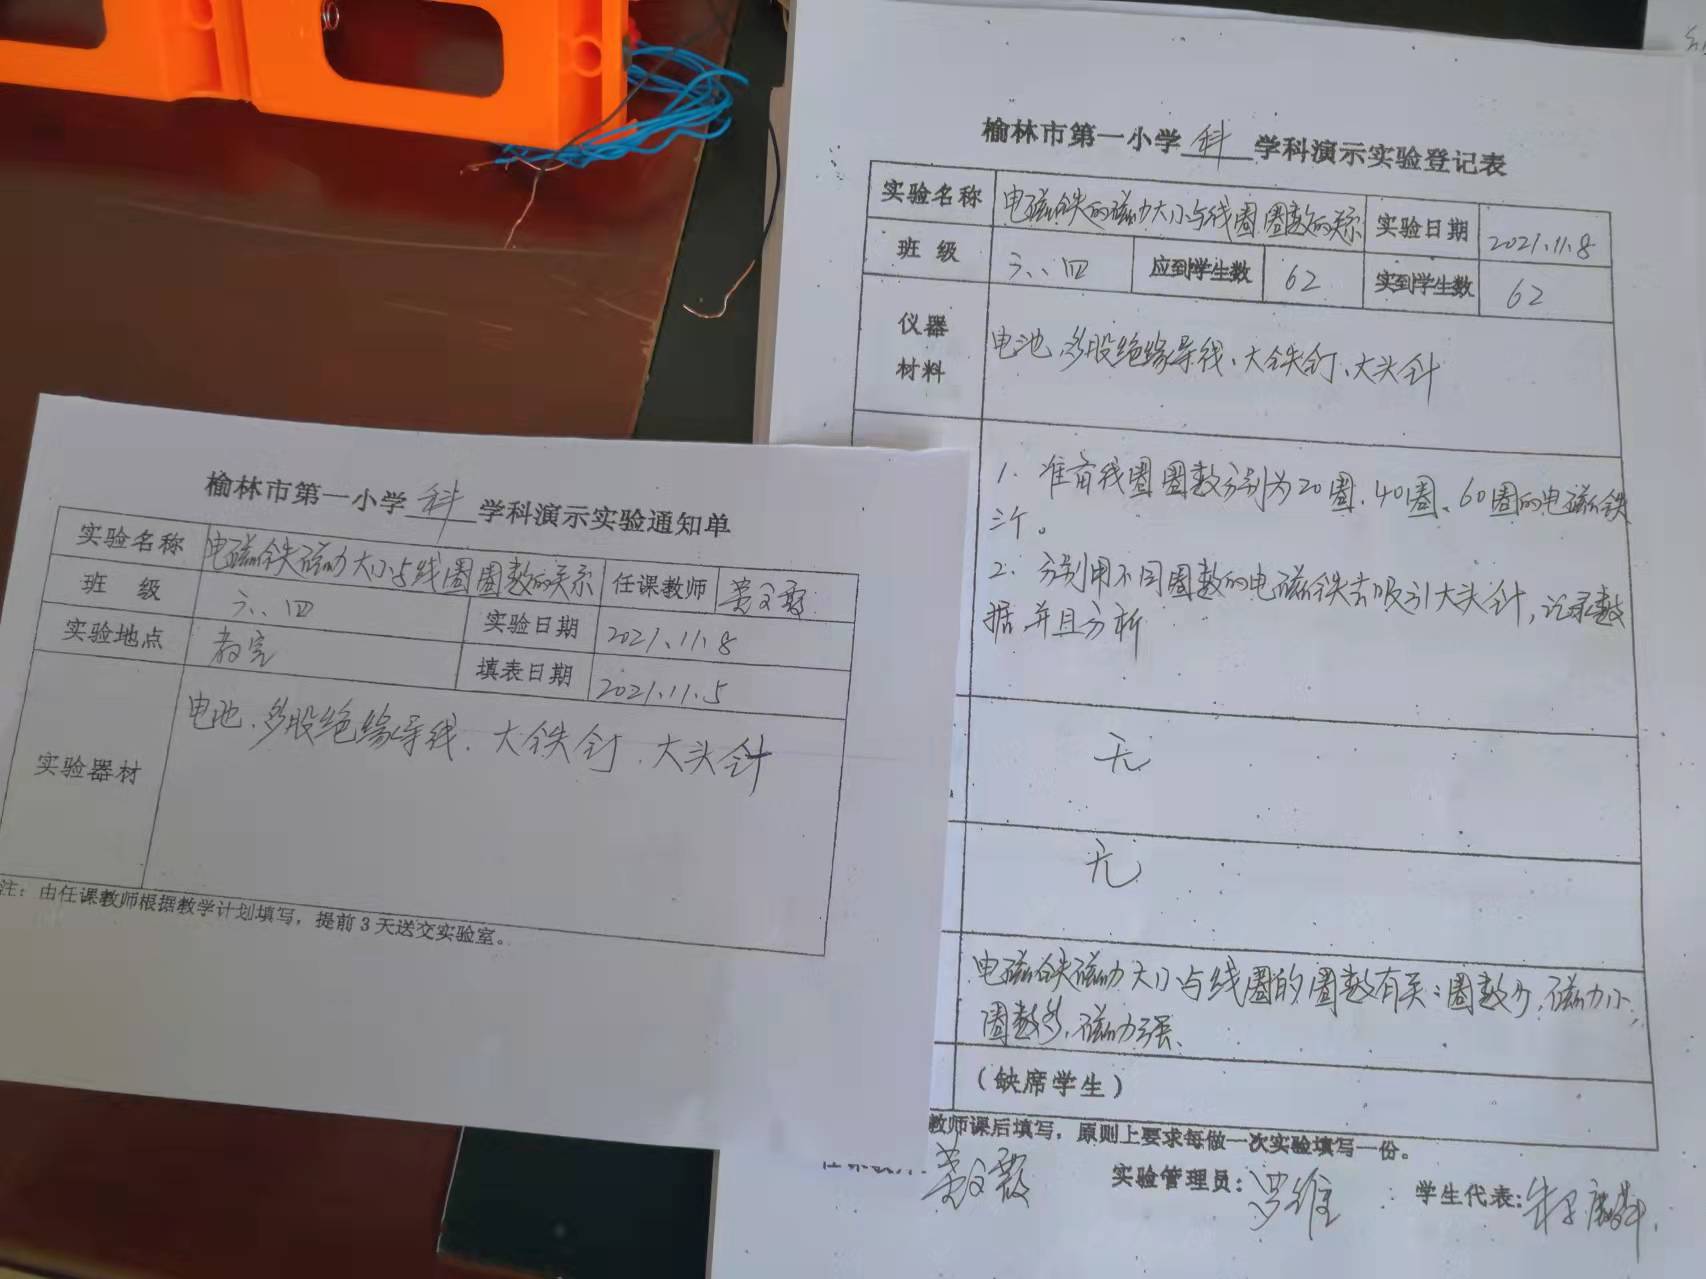 榆林市第一小学 科 学科演示实验通知单
实验名称 电磁铁磁力大小与线圈圈数的关系 任课教师
班 级 六、四 实验日期 2021.11.8
实验地点 教室 填表日期 2021.11.5
实验器材 电池、多股绝缘导线、大铁钉、大头针
注：由任课教师根据教学计划填写，提前3天送交实验室。
榆林市第一小学 科 学科演示实验登记表
实验名称 电磁铁的磁力大小与线圈圈数的关系 实验日期 2021.11.8
班 级 六、四 应到学生数 62 实到学生数 62
仪器
材料
电池、多股绝缘导线、大铁钉、大头针
1. 准备线圈圈数分别为20圈、40圈、60圈的电磁铁
三个。
2. 分别用不同圈数的电磁铁去吸引大头针，记录数
据并且分析
无
无
电磁铁磁力大小与线圈的圈数有关：圈数少，磁力小，
圈数多，磁力强、
（缺席学生）
教师课后填写，原则上要求每做一次实验填写一份。
实验管理员：罗维 学生代表：